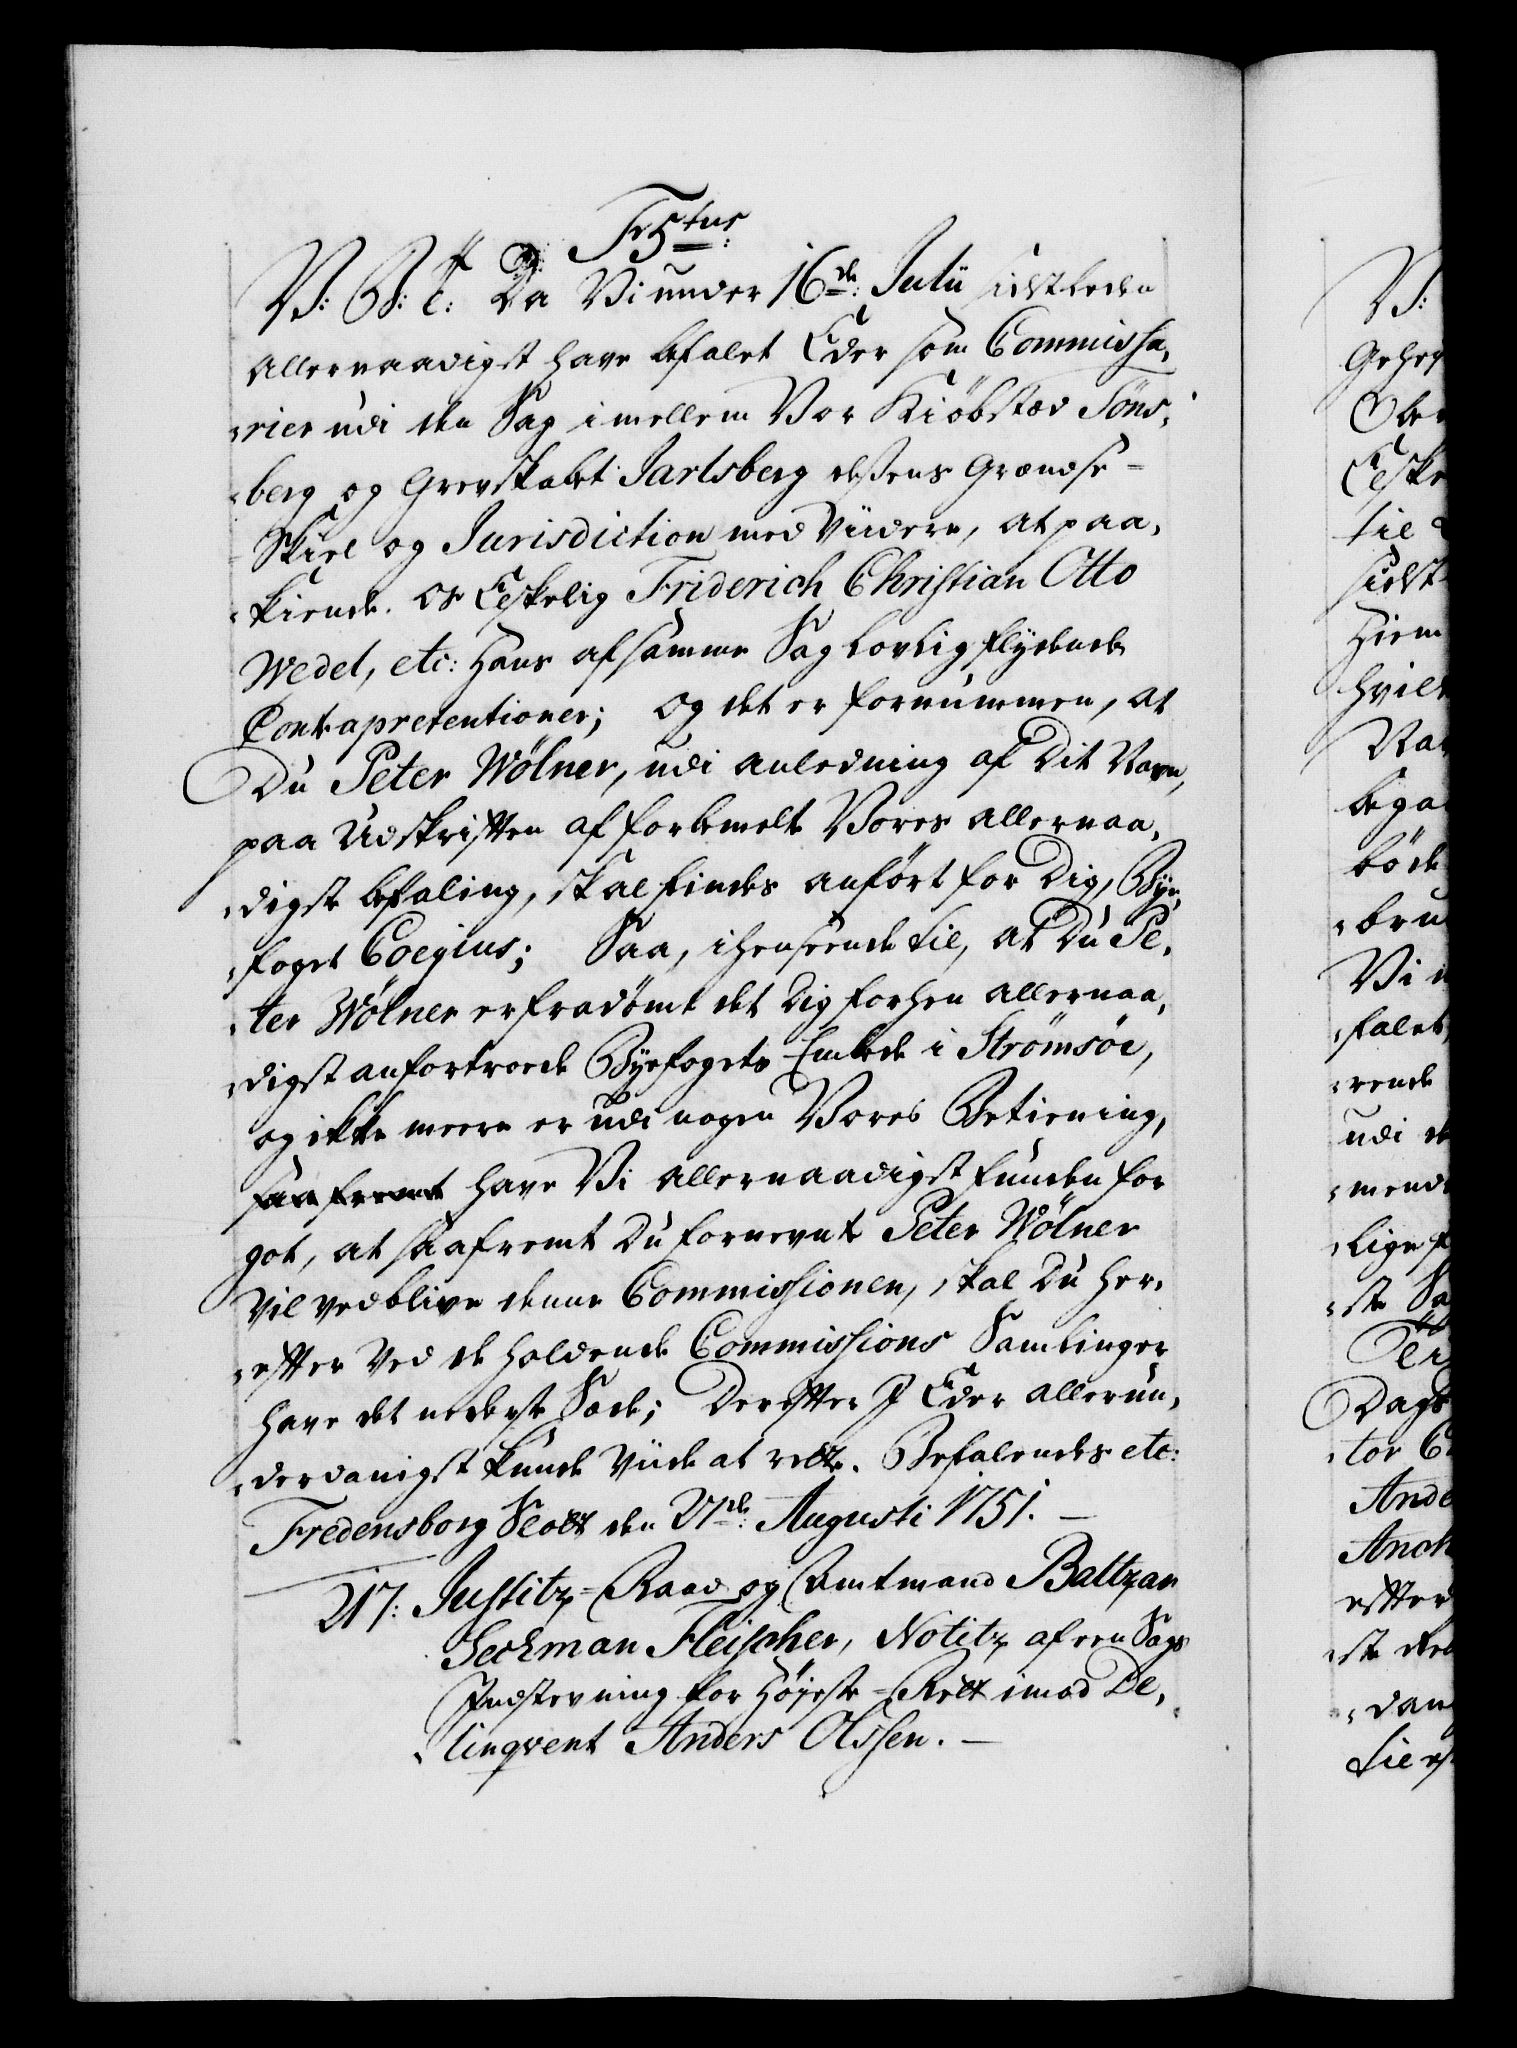 Fr5tus:
V: G: T: Da Vi under 16de: Julii sidstleden
allernaadigst have befalet Eder som Commissa,
rier udi den Sag imellem Vor Kiøbstæd Tøns,
berg og Grevskabet Jarlsberg dessens Grændse-
Skiel og Jurisdiction med Viidere, at paa,
kiende Os Elskelig Friderich Christian Otto
Wedel, etc: Hans af samme Sag Lovlig flydende
Contrapretentioner; og det er fornummen, at
Du Peter Wölner, udi anledning af Dit Navn,
paa Udskriften af forbemelte Vores allernaa,
digste befaling, skal findes anført for Dig, Bye,
foged Coegius; Saa, i henseende til, at Du Pe,
ter Wölner er fradømt det Dig forhen allernaa,
digst anfortroede Byefogets Embede i Strömsöe,
og ikke meere er udi nogen Vores Betiening,
saafremt have Vi allernaadigst funden for
got, at saafremt Du fornevnte Peter Wölner
vil vedblive denne Commissionen, skal Du her,
efter ved de holdende Commissions Samlinger
have det nederste Sæde; Derefter I Eder allerun,
derdanigst kunde viide at rette. Befalendes etc:
Fredensborg Slott den 27de: Augusti 1751. —
217: Justitz-Raad og Amtmand Baltzar
Sechman Fleischer, Notitz af een Sags
Indstevning for Høyeste-Rett imod De,
linqvent Anders Olssen. —
V:
Geheg
Ober
Elske
til
sidst
Hiem
hvil
Nav
bega
böde
bru
Vi
falet
rende
udi de
mend
lige f
ste Sa
Dags
tor C
Ande
Anch
efter
dan